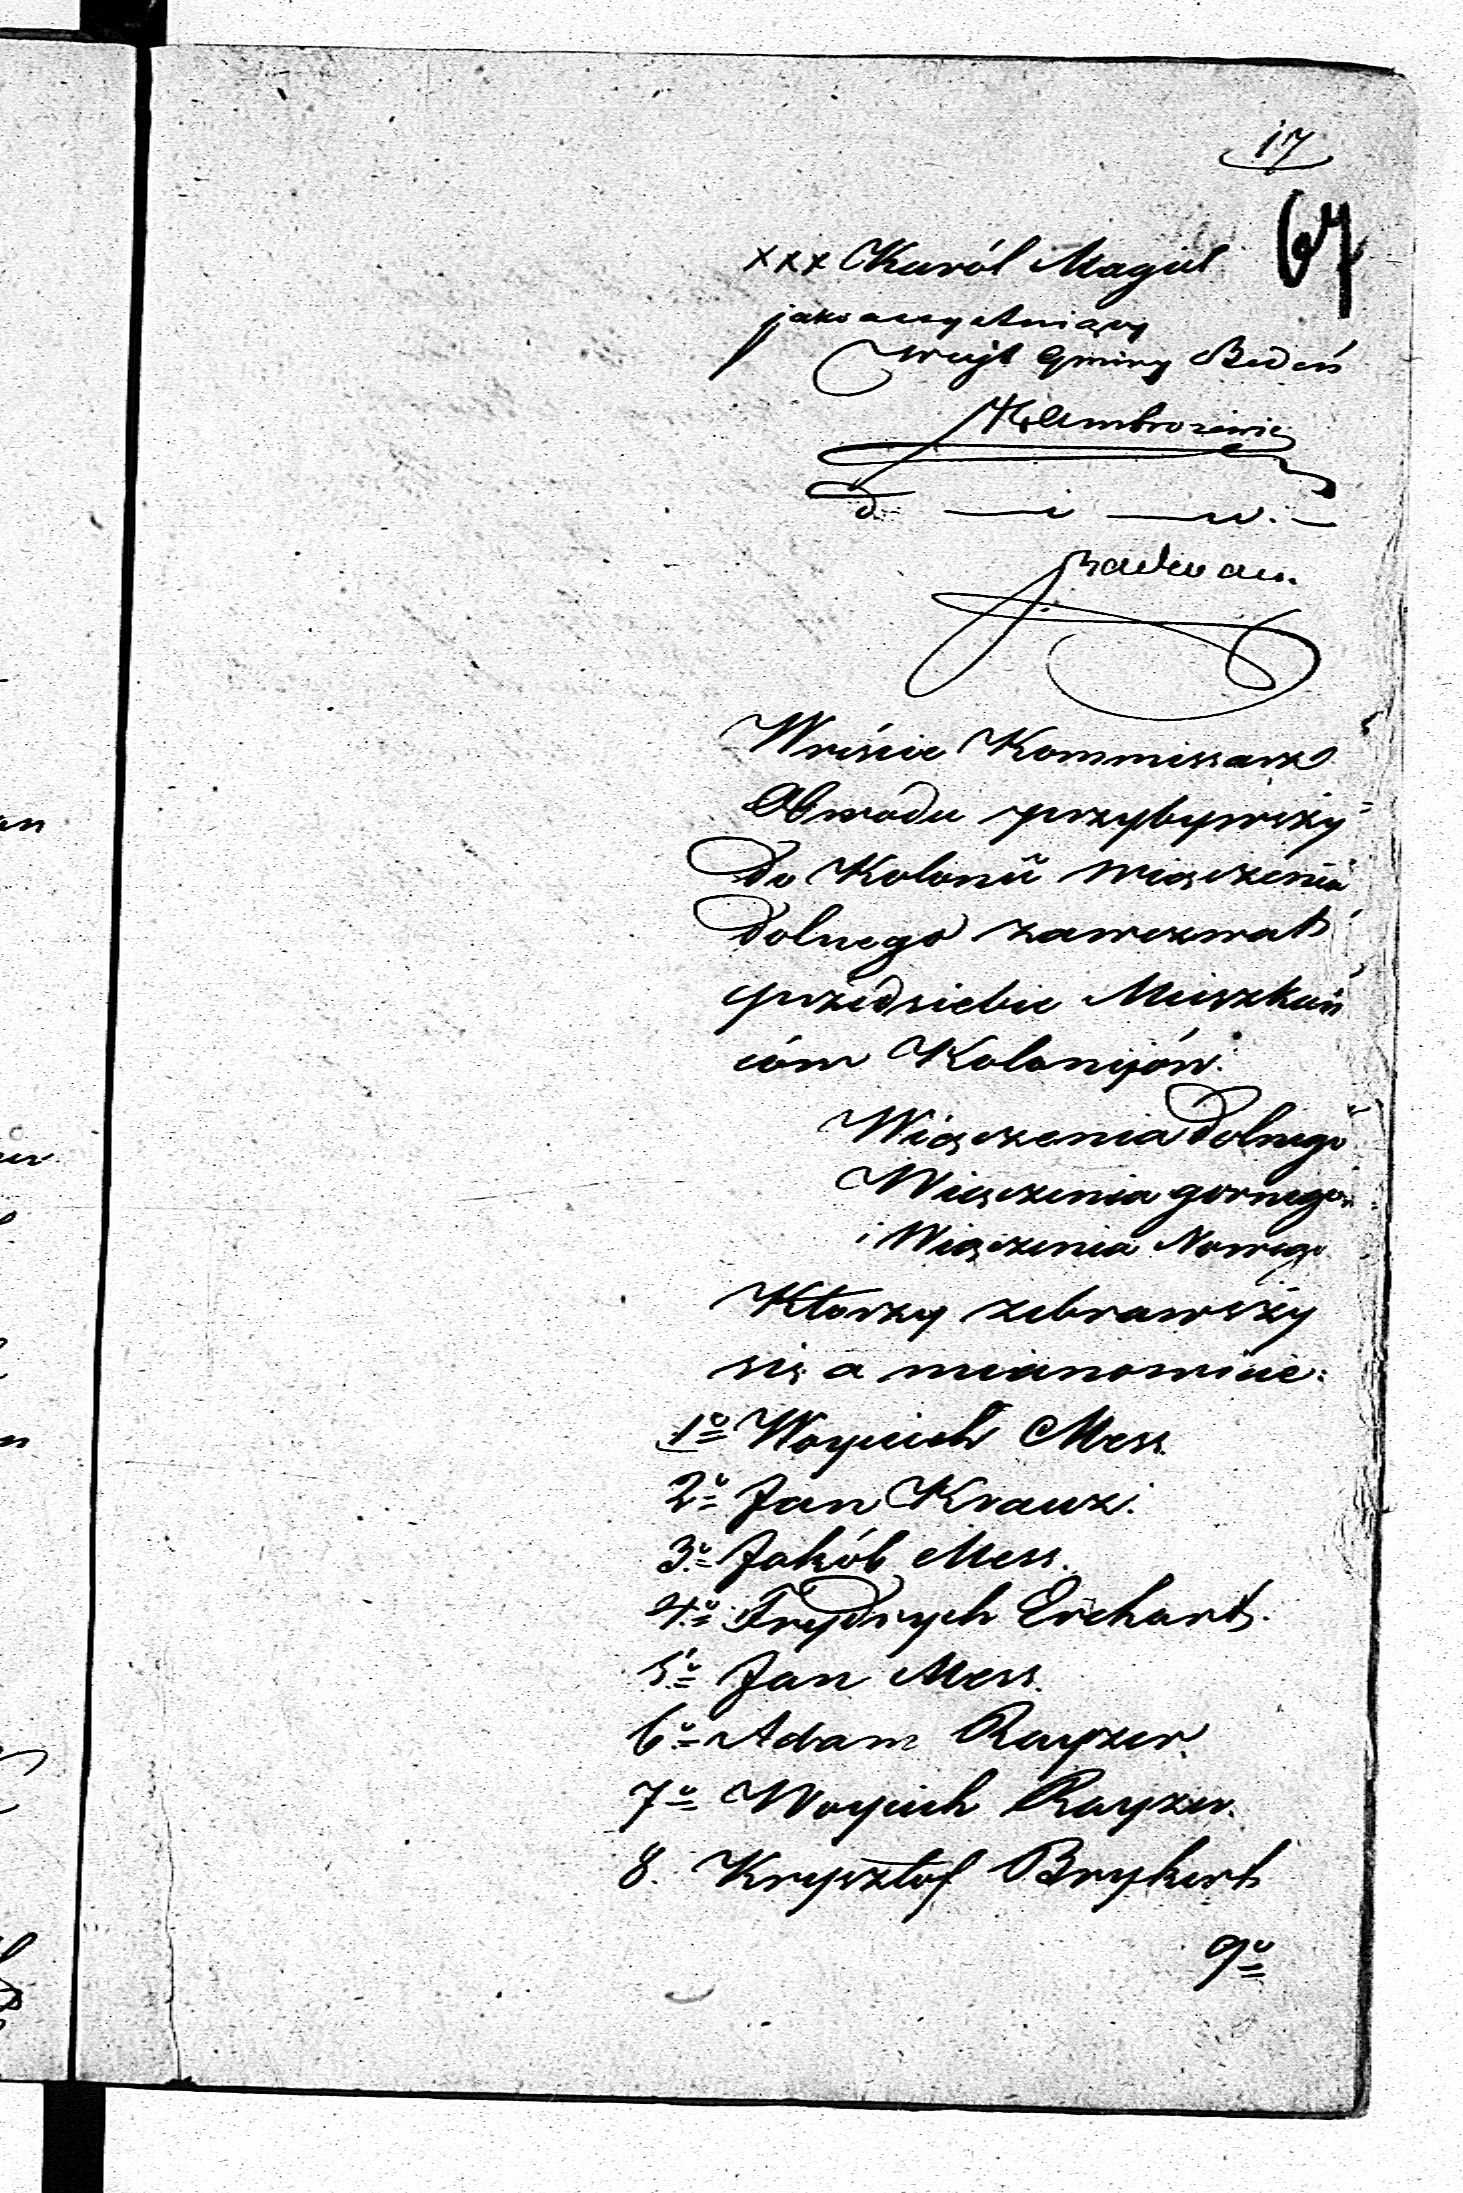 17
67
xxx Karól Magiel
jako assystniący
Woyt Gminy Bodeń
Ambrozewic
d. — i — w. —
Wreście Kommissarz
Obwodu przybywszy
do Kolonii Wiączenia
dolnego zawezwał
przedsiebie Mieszkań
ców Kolonijów.
Wiączenia dolnego
Wiączenia gornego
i Wiączenia Nowego
Ktorzy zebrawszy
się a mianowicie:
1o Woyciech Mess.
2o Jan Krauz.
3o Jakób Mess.
4o Frydrych Erchart.
5o Jan Mess.
6o Adam Rayzer.
7o Woyciech Rayzer.
8. Krysztof Brykert
9o